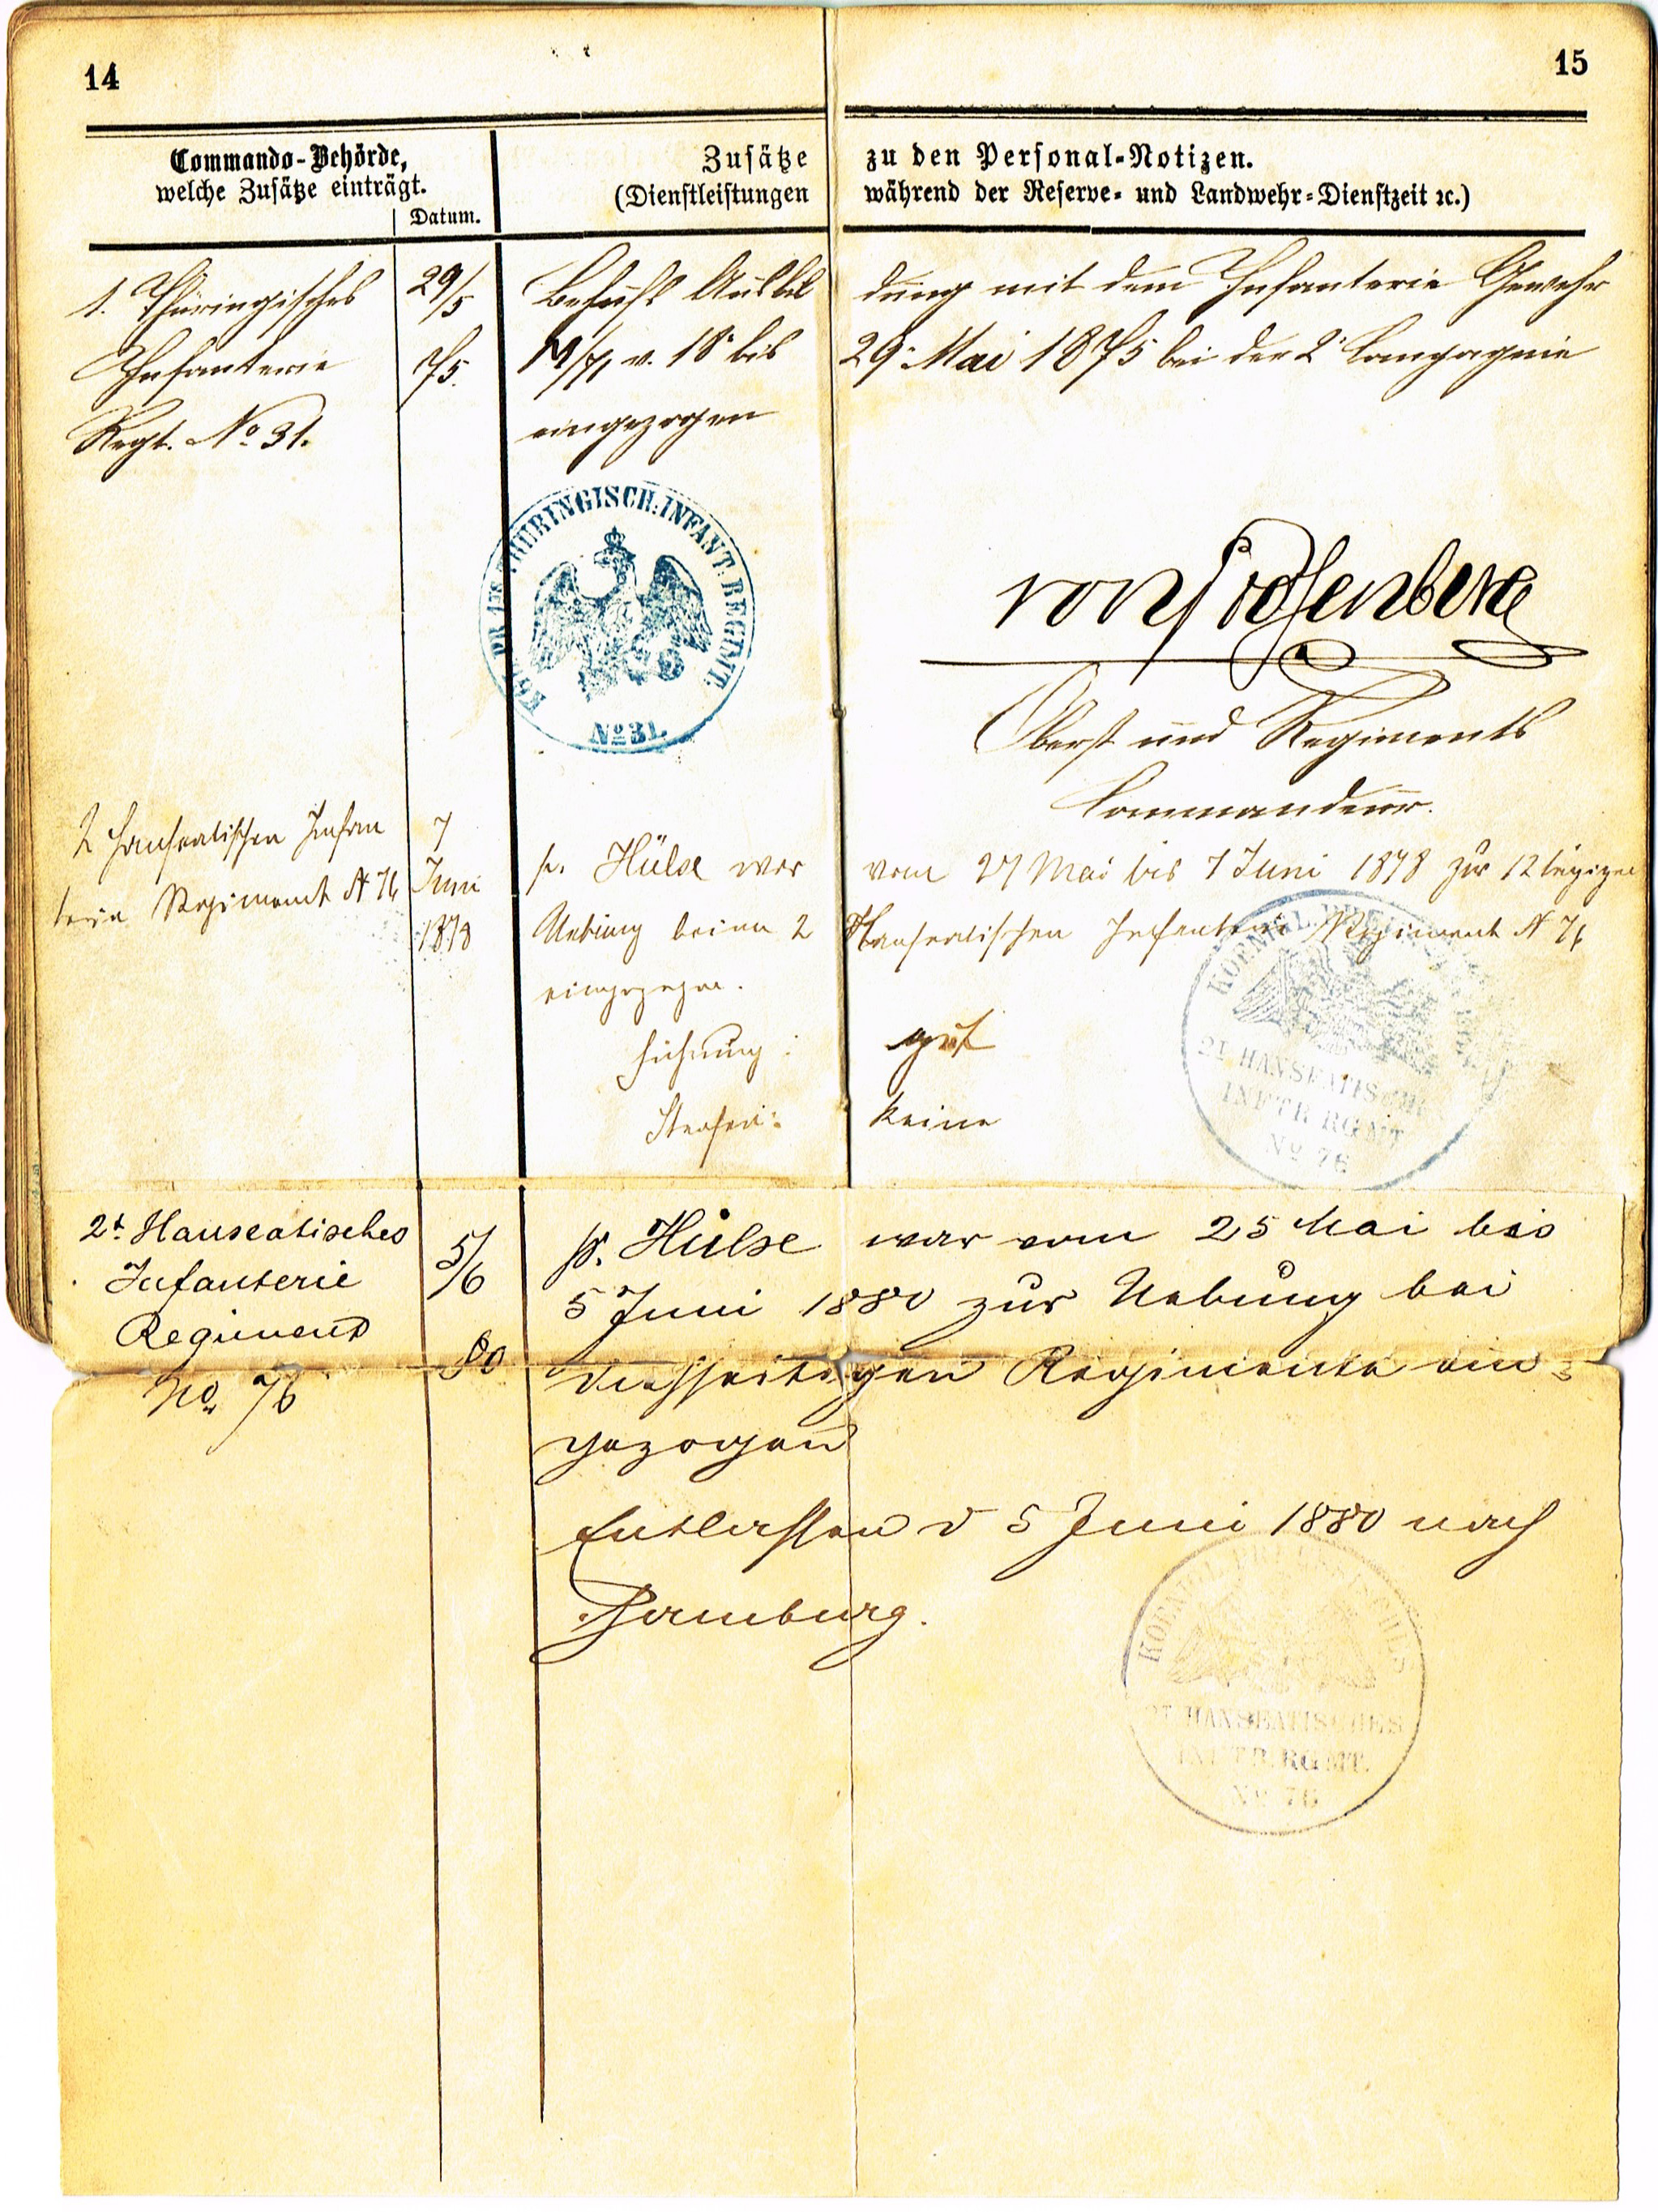 14
15
Commando-Behörde,
welche Zusätze einträgt.
Datum.
Zusätze zu den Personal-Notizen.
(Dienstleistungen während der Reserve- und Landwehr-Dienstzeit ꝛc.)
1. Thüringisches 29/5 Behufs Ausbil dung mit dem Infanterie Gewehr
Infanterie 75. M/71 v. 18t bis 29t Mai 1875 bei der 2t Compagnie
Regt. No 31. eingezogen
KGL. PR. 1TES THÜRINGISCH. INFANT. REGIMT.
No 31.
von Rosenberg
Oberst und Regiments
Commandeur.
2 Hanseatischen Infan 7 p. Hülse war vom 27 Mai bis 7 Juni 1878 zur 12 tägigen
terie Regiment N 76 Juni 1878 Uebung beim 2 Hanseatischen Infanterie Regiment N 76
eingezogen.
Führung: gut
Strafen: keine
KOENIGL. PREUSSISCHES
2T. HANSEATISCHES
INFTR. RGMT
No 76
2t. Hanseatisches 5/6 p. Hülse war vom 25 Mai bis
Infanterie 5 Juni 1880 zur Uebung bei
Regiment 80 diesseitigen Regimente ein=
No. 76 gezogen
Entlassen d 5 Juni 1880 nach
Hamburg.
KOENIGL. PREUSSISCHES
2T. HANSEATISCHES
INFTR. RGMT.
No 76